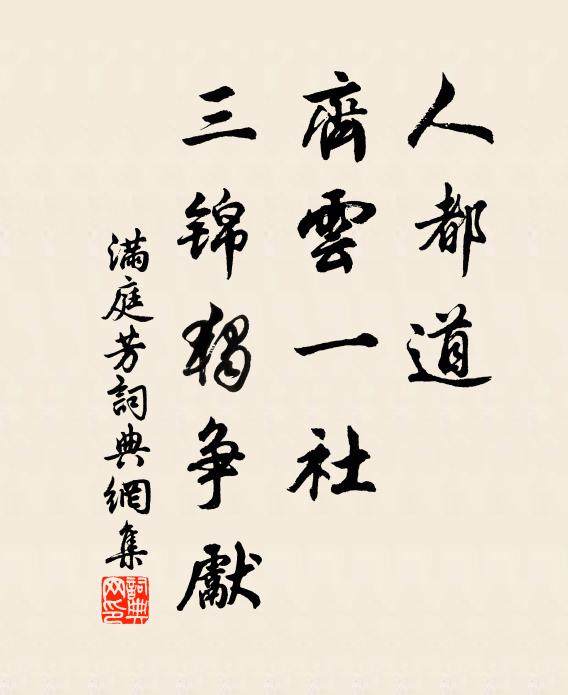 人都道
齊雲一社
三锦獨争獻
滿庭芳詞典網集
詞典網印